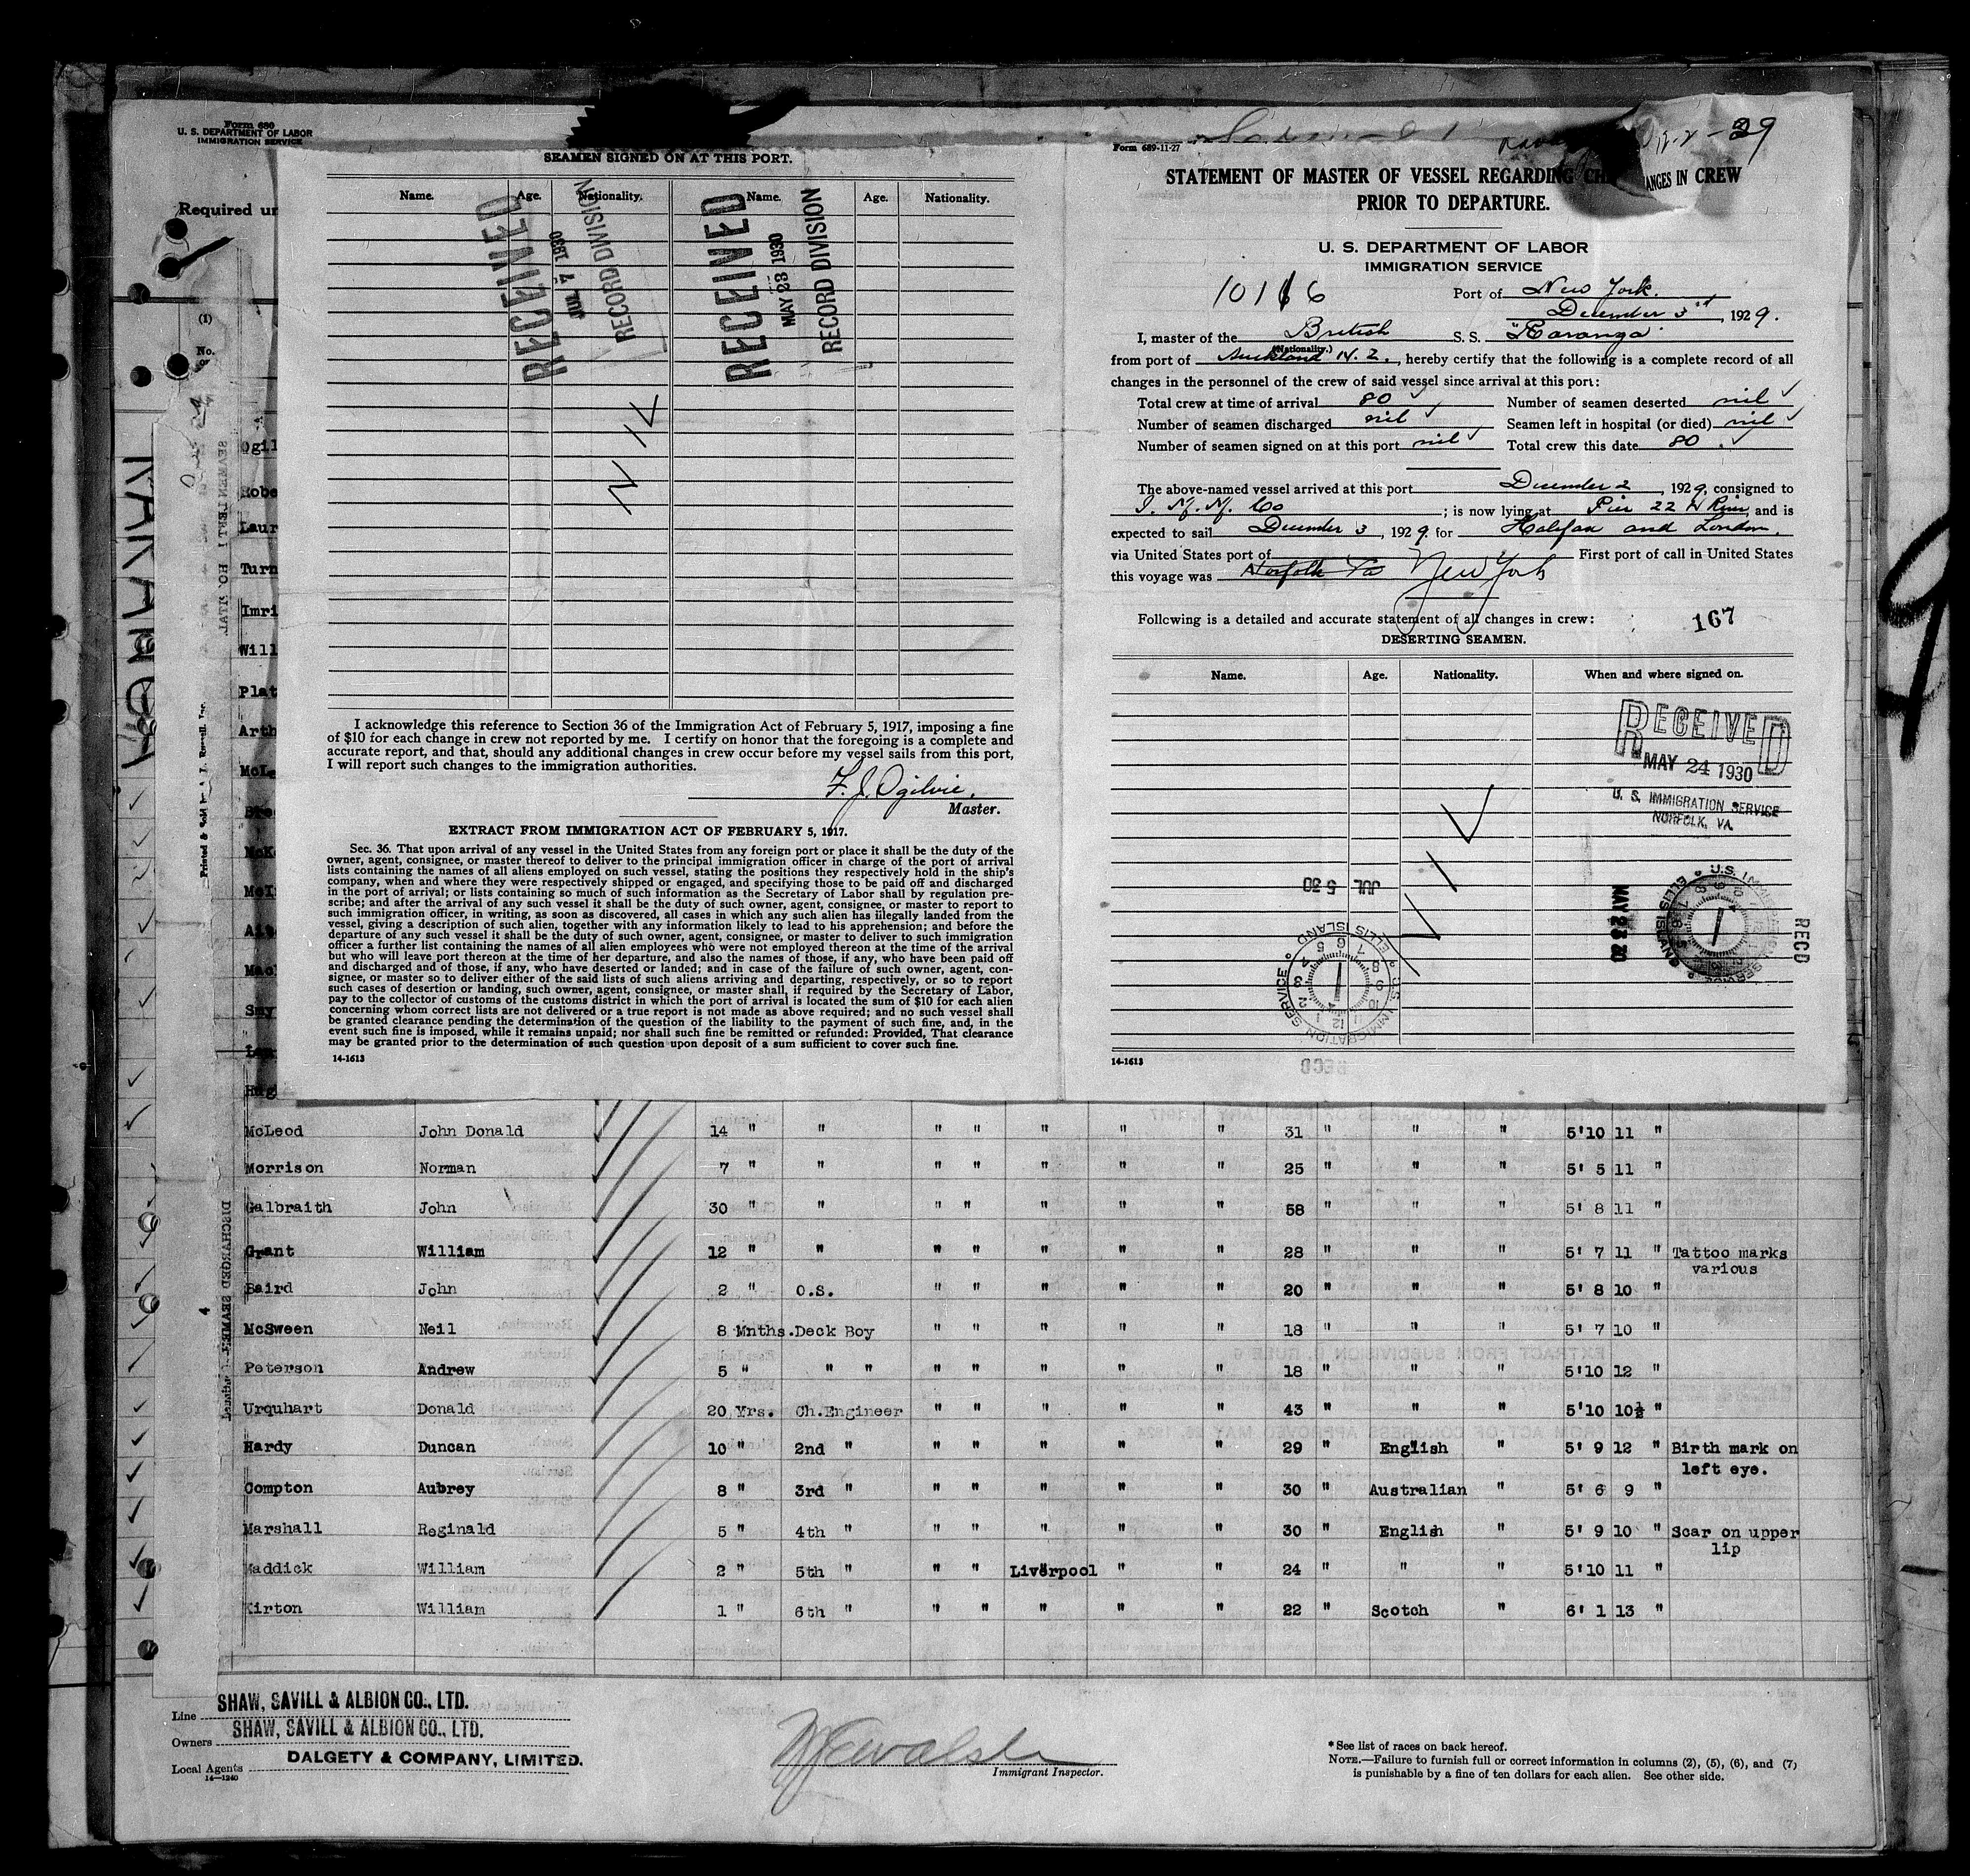 Form 680
U. S. DEPARTMENT OF LABOR
IMMIGRATION SERVICE
Required un
(1)
No.
SEAMEN SIGNED ON AT THIS PORT.
Name. Age. Nationality. Name. Age. Nationality.
RECEIVED
JUL 7 1930
RECORD DIVISION
RECEIVED
MAY 23 1930
RECORD DIVISION
NIL
I acknowledge this reference to Section 36 of the Immigration Act of February 5, 1917, imposing a fine
of $10 for each change in crew not reported by me. I certify on honor that the foregoing is a complete and
accurate report, and that, should any additional changes in crew occur before my vessel sails from this port,
I will report such changes to the immigration authorities.
F. J. Ogilvie.
Master.
EXTRACT FROM IMMIGRATION ACT OF FEBRUARY 5, 1917.
Sec. 36. That upon arrival of any vessel in the United States from any foreign port or place it shall be the duty of the
owner, agent, consignee, or master thereof to deliver to the principal immigration officer in charge of the port of arrival
lists containing the names of all aliens employed on such vessel, stating the positions they respectively hold in the ship's
company, when and where they were respectively shipped or engaged, and specifying those to be paid off and discharged
in the port of arrival; or lists containing so much of such information as the Secretary of Labor shall by regulation pre-
scribe; and after the arrival of any such vessel it shall be the duty of such owner, agent, consignee, or master to report to
such immigration officer, in writing, as soon as discovered, all cases in which any such alien has illegally landed from the
vessel, giving a description of such alien, together with any information likely to lead to his apprehension; and before the
departure of any such vessel it shall be the duty of such owner, agent, consignee, or master to deliver to such immigration
officer a further list containing the names of all alien employees who were not employed thereon at the time of the arrival
but who will leave port thereon at the time of her departure, and also the names of those, if any, who have been paid off
and discharged and of those, if any, who have deserted or landed; and in case of the failure of such owner, agent, con-
signee, or master so to deliver either of the said lists of such aliens arriving and departing, respectively, or so to report
such cases of desertion or landing, such owner, agent, consignee, or master shall, if required by the Secretary of Labor,
pay to the collector of customs of the customs district in which the port of arrival is located the sum of $10 for each alien
concerning whom correct lists are not delivered or a true report is not made as above required; and no such vessel shall
be granted clearance pending the determination of the question of the liability to the payment of such fine, and, in the
event such fine is imposed, while it remains unpaid; nor shall such fine be remitted or refunded: Provided, That clearance
may be granted prior to the determination of such question upon deposit of a sum sufficient to cover such fine.
14-1613
Form 689-11-27
29
STATEMENT OF MASTER OF VESSEL REGARDING CHANGES IN CREW
PRIOR TO DEPARTURE.
U. S. DEPARTMENT OF LABOR
IMMIGRATION SERVICE
10166
Port of New York.
December 3rd, 1929.
I, master of the British S. S. "Karanga"
(Nationality.)
from port of Auckland N. Z., hereby certify that the following is a complete record of all
changes in the personnel of the crew of said vessel since arrival at this port:
Total crew at time of arrival 80 Number of seamen deserted nil
Number of seamen discharged nil Seamen left in hospital (or died) nil
Number of seamen signed on at this port nil Total crew this date 80.
The above-named vessel arrived at this port December 2, 1929, consigned to
Co ; is now lying at Pier 22 and is
expected to sail December 3, 1929. for Halifax and London.
via United States port of First port of call in United States
this voyage was Norfolk Va New York
Following is a detailed and accurate statement of all changes in crew:
167
DESERTING SEAMEN.
Name. Age. Nationality. When and where signed on.
RECEIVED
MAY 24 1930
U. S. IMMIGRATION SERVICE
NORFOLK, VA.
NIL
JUL 5 30
U.S. IMMIGRATION SERVICE ELLIS ISLAND
RECD
MAY 23 30
U.S. IMMIGRATION SERVICE ELLIS ISLAND
RECD
14-1613
Ogil
Robe
Laur
Turn
Imri
Will
Plat
Arth
McL
McK
Smy
McLeod John Donald 14 " " " " " " " 31 " " " 5'10 11 "
Morrison Norman 7 " " " " " " " 25 " " " 5' 5 11 "
Galbraith John 30 " " " " " " " 58 " " " 5' 8 11 "
Grant William 12 " " " " " " " 28 " " " 5' 7 11 " Tattoo marks
various
Baird John 2 " O.S. " " " " " 20 " " " 5' 8 10 "
McSween Neil 8 Mnths. Deck Boy " " " " " 18 " " " 5' 7 10 "
Peterson Andrew 5 " " " " " " " " 18 " " " 5'10 12 "
Urquhart Donald 20 Yrs. Ch.Engineer " " " " " 43 " " " 5'10 10½ "
Hardy Duncan 10 " 2nd " " " " " " 29 " English " 5' 9 12 " Birth mark on
left eye.
Compton Aubrey 8 " 3rd " " " " " " 30 " Australian " 5' 6 9 "
Marshall Reginald 5 " 4th " " " " " " 30 " English " 5' 9 10 " Scar on upper
lip
Maddick William 2 " 5th " " " Liverpool " " 24 " " " 5'10 11 "
Kirton William 1 " 6th " " " " " " 22 " Scotch " 6' 1 13 "
Line SHAW, SAVILL & ALBION CO., LTD.
Owners SHAW, SAVILL & ALBION CO., LTD.
Local Agents DALGETY & COMPANY, LIMITED.
14-1240
Immigrant Inspector.
* See list of races on back hereof.
NOTE.—Failure to furnish full or correct information in columns (2), (5), (6), and (7)
is punishable by a fine of ten dollars for each alien. See other side.